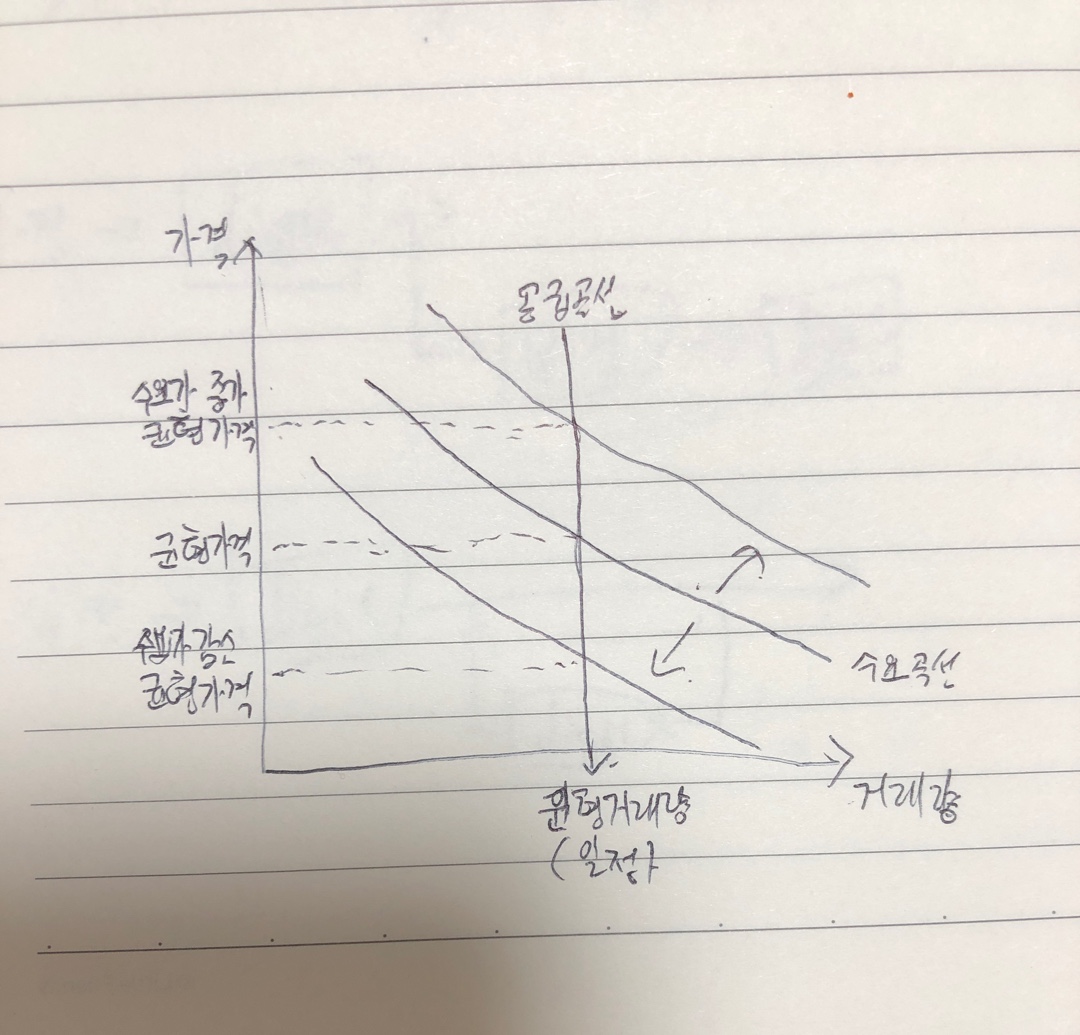 가격
공급곡선
수요가 증가
균형가격
균형가격
수요가 감소
균형가격
수요곡선
균형거래량
(일정)
거래량